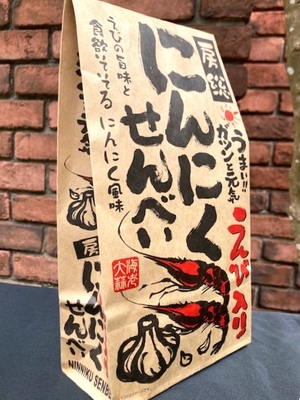 房総
にんにく
せんべい
えびの旨味と
食欲そそる
にんにく風味
うまい!!
ガツンと元気
えび入り
海老
大蒜
房
にんにく
せんべい
NINNIKU SENBE